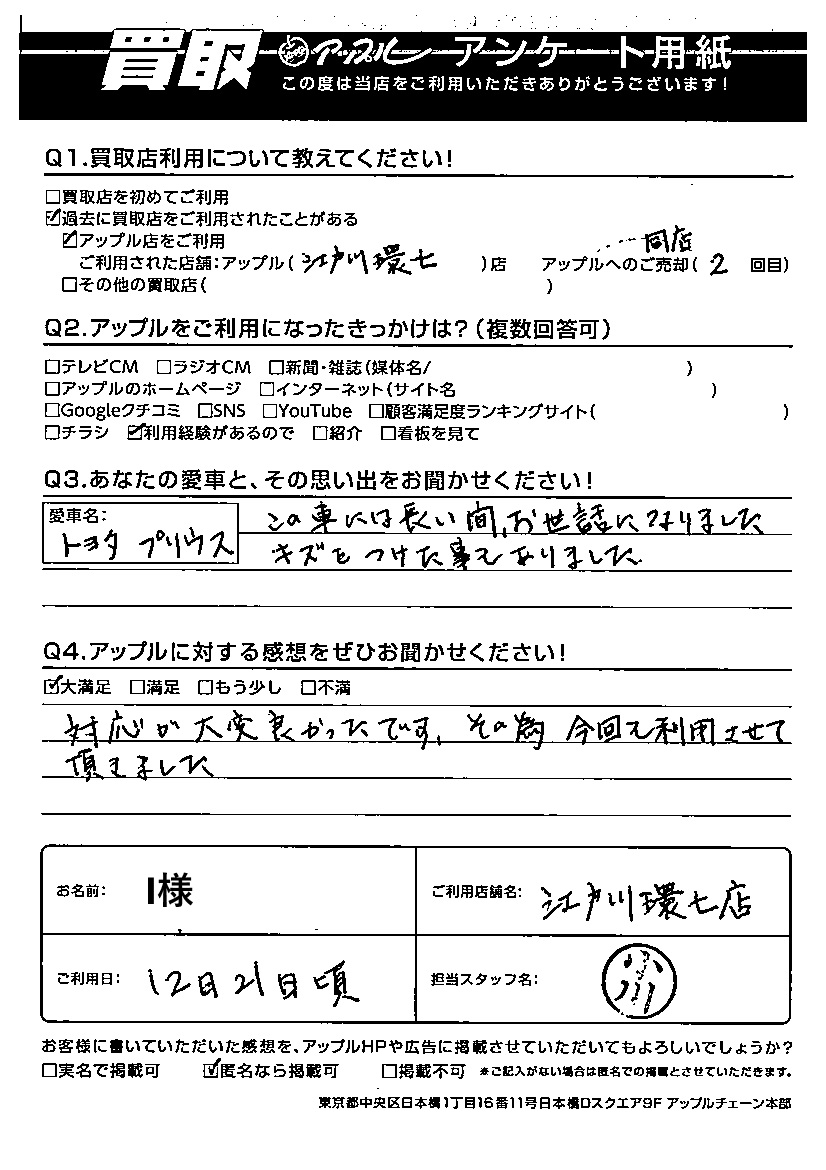 買取 アップル アンケート用紙
この度は当店をご利用いただきありがとうございます!
Q1.買取店利用について教えてください!
□買取店を初めてご利用
☑過去に買取店をご利用されたことがある
☑アップル店をご利用 ・・・同店
ご利用された店舗:アップル(江戸川環七)店 アップルへのご売却(2回目)
□その他の買取店( )
Q2.アップルをご利用になったきっかけは?(複数回答可)
□テレビCM □ラジオCM □新聞・雑誌(媒体名/ )
□アップルのホームページ □インターネット(サイト名 )
□Googleクチコミ □SNS □YouTube □顧客満足度ランキングサイト( )
□チラシ ☑利用経験があるので □紹介 □看板を見て
Q3.あなたの愛車と、その思い出をお聞かせください!
愛車名:
トヨタ プリウス
この車には長い間、お世話になりました
キズをつけた事もありました
Q4.アップルに対する感想をぜひお聞かせください!
☑大満足 □満足 □もう少し □不満
対応が大変良かったです。その為今回も利用させて
頂きました
お名前: I様 ご利用店舗名: 江戸川環七店
ご利用日: 12日21日頃 担当スタッフ名: 小川
お客様に書いていただいた感想を、アップルHPや広告に掲載させていただいてもよろしいでしょうか?
□実名で掲載可 ☑匿名なら掲載可 □掲載不可 *ご記入がない場合は匿名での掲載とさせていただきます。
東京都中央区日本橋1丁目16番11号日本橋Dスクエア9F アップルチェーン本部